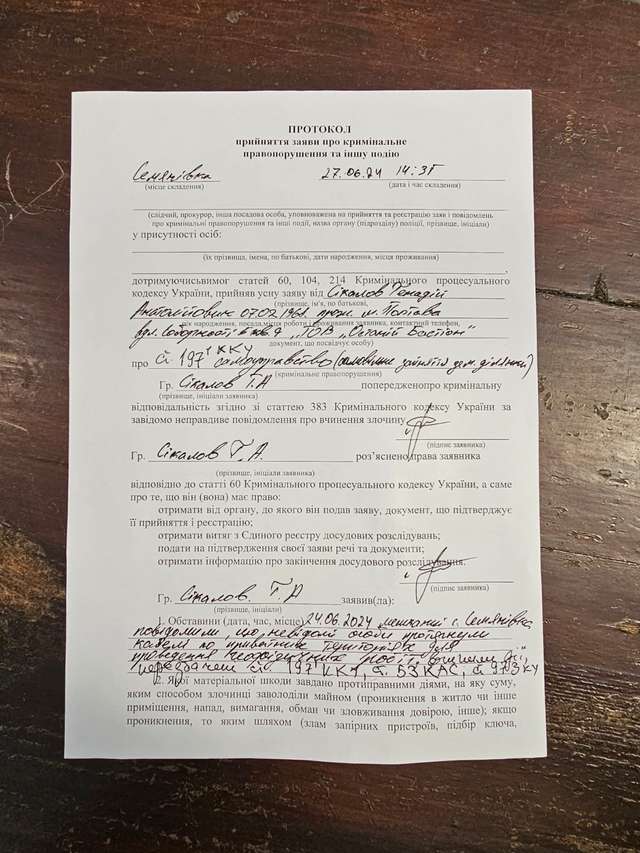 ПРОТОКОЛ
прийняття заяви про кримінальне
правопорушення та іншу подію
Семянівка 27.06.24 14:35
(місце складення) (дата і час складення)
(слідчий, прокурор, інша посадова особа, уповноважена на прийняття та реєстрацію заяв і повідомлень
про кримінальні правопорушення та інші події, назва органу (підрозділу) поліції, прізвище, ініціали)
у присутності осіб:
(їх прізвища, імена, по батькові, дати народження, місця проживання)
дотримуючисьвимог статей 60, 104, 214 Кримінального процесуального
кодексу України, прийняв усну заяву від Сікалов Генадій
(прізвище, ім'я, по батькові,
Анатолійович 07.02.1961. м. Полтава
рік народження, посада, місце роботи і проживання заявника, контактний телефон,
вул. Соборності "ТОВ "Останій Бастіон"
документ, що посвідчує особу)
про Ст. 197¹ ККУ самоуправство (самовільне зайняття зем. ділянки)
(кримінальне правопорушення)
Гр. Сікалов Г.А попередженопро кримінальну
(прізвище, ініціали заявника)
відповідальність згідно зі статтею 383 Кримінального кодексу України за
завідомо неправдиве повідомлення про вчинення злочину
(підпис заявника)
Гр. Сікалов Г. А. роз'яснено права заявника
(прізвище, ініціали заявника)
відповідно до статті 60 Кримінального процесуального кодексу України, а саме
про те, що він (вона) має право:
отримати від органу, до якого він подав заяву, документ, що підтверджує
її прийняття і реєстрацію;
отримати витяг з Єдиного реєстру досудових розслідувань;
подати на підтвердження своєї заяви речі та документи;
отримати інформацію про закінчення досудового розслідування.
(підпис заявника)
Гр. Сікалов. Г. А заявив(ла):
(прізвище, ініціали)
1. Обставини (дата, час, місце) 24.06.2024 мешканці с. Семянівка
повідомили, що невідомі особи протягнули
кабелі по приватних для
проведення робіт,
передбачені ст. 197¹ ККУ, ст. 53 КАС,
2. Якої матеріальної школи завдано протиправними діями, на яку суму,
яким способом злочинці заволоділи майном (проникнення в житло чи інше
приміщення, напад, вимагання, обман чи зловживання довірою, інше); якщо
проникнення, то яким шляхом (злам запірних пристроїв, підбір ключа,